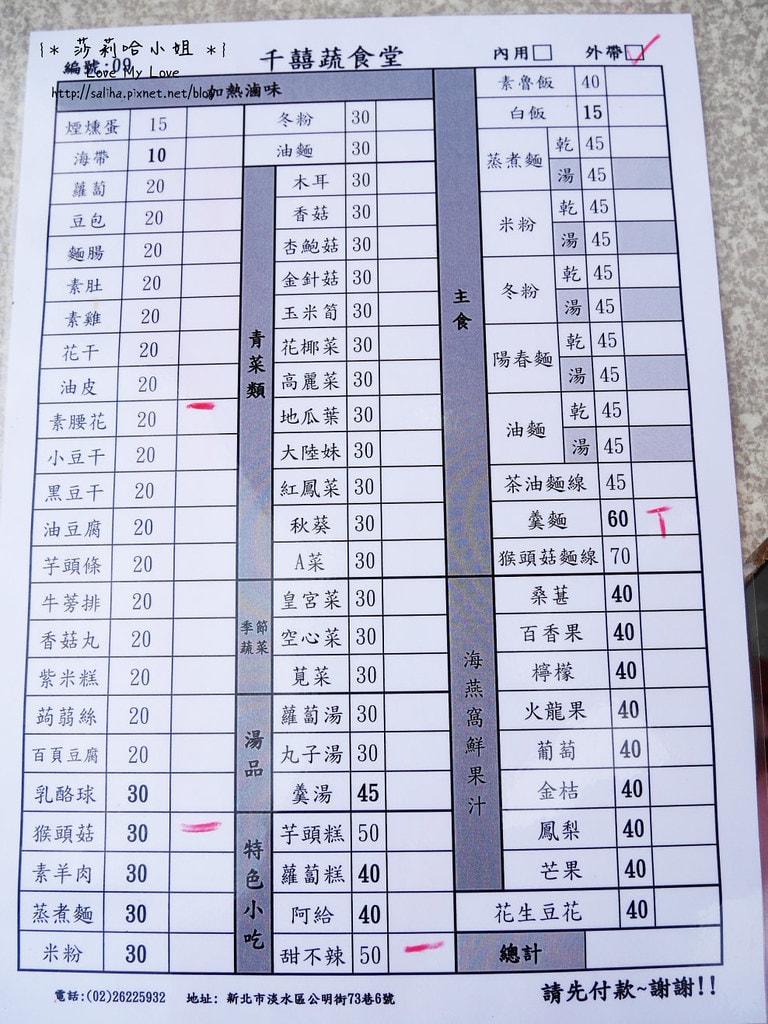 {* 莎莉哈小姐 *}
Love My Love
http://saliha.pixnet.net/blog
編號:09 千禧蔬食堂 內用□ 外帶□
加熱滷味
煙燻蛋 15
海帶 10
蘿蔔 20
豆包 20
麵腸 20
素肚 20
素雞 20
花干 20
油皮 20
素腰花 20
小豆干 20
黑豆干 20
油豆腐 20
芋頭條 20
牛蒡排 20
香菇丸 20
紫米糕 20
蒟蒻絲 20
百頁豆腐 20
乳酪球 30
猴頭菇 30
素羊肉 30
蒸煮麵 30
米粉 30
冬粉 30
油麵 30
青菜類
木耳 30
香菇 30
杏鮑菇 30
金針菇 30
玉米筍 30
花椰菜 30
高麗菜 30
地瓜葉 30
大陸妹 30
紅鳳菜 30
秋葵 30
A菜 30
季節蔬菜
皇宮菜 30
空心菜 30
莧菜 30
湯品
蘿蔔湯 30
丸子湯 30
羹湯 45
特色小吃
芋頭糕 50
蘿蔔糕 40
阿給 40
甜不辣 50
主食
素魯飯 40
白飯 15
蒸煮麵 乾 45
湯 45
米粉 乾 45
湯 45
冬粉 乾 45
湯 45
陽春麵 乾 45
湯 45
油麵 乾 45
湯 45
茶油麵線 45
羹麵 60
猴頭菇麵線 70
海燕窩鮮果汁
桑葚 40
百香果 40
檸檬 40
火龍果 40
葡萄 40
金桔 40
鳳梨 40
芒果 40
花生豆花 40
總計
電話:(02)26225932 地址: 新北市淡水區公明街73巷6號 請先付款~謝謝!!